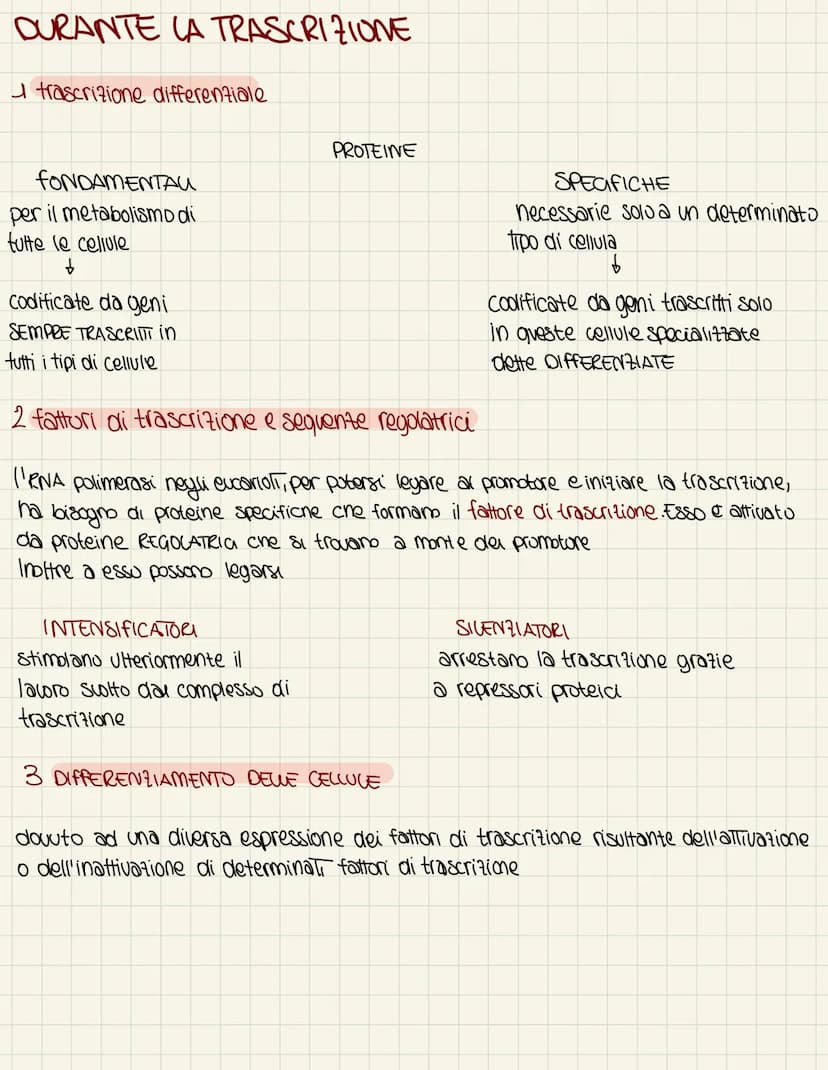 DURANTE LA TRASCRIZIONE
1 trascrizione differenziale
PROTEINE
FONDAMENTALI
per il metabolismo di
tutte le cellule
↓
codificate da geni
SEMPRE TRASCRITTI in
tutti i tipi di cellule
SPECIFICHE
necessarie solo a un determinato
tipo di cellula
↓
codificate da geni trascritti solo
in queste cellule specializzate
dette DIFFERENZIATE
2 fattori di trascrizione e sequenze regolatrici
l'RNA polimerasi negli eucarioti, per potersi legare al promotore e iniziare la trascrizione,
ha bisogno di proteine specifiche che formano il fattore di trascrizione. Esso è attivato
da proteine REGOLATRICI che si trovano a monte del promotore
Inoltre a esso possono legarsi
INTENSIFICATORI
stimolano ulteriormente il
lavoro svolto dal complesso di
trascrizione
SILENZIATORI
arrestano la trascrizione grazie
a repressori proteici
3 DIFFERENZIAMENTO DELLE CELLULE
dovuto ad una diversa espressione dei fattori di trascrizione risultante dell'attivazione
o dell'inattivazione di determinati fattori di trascrizione